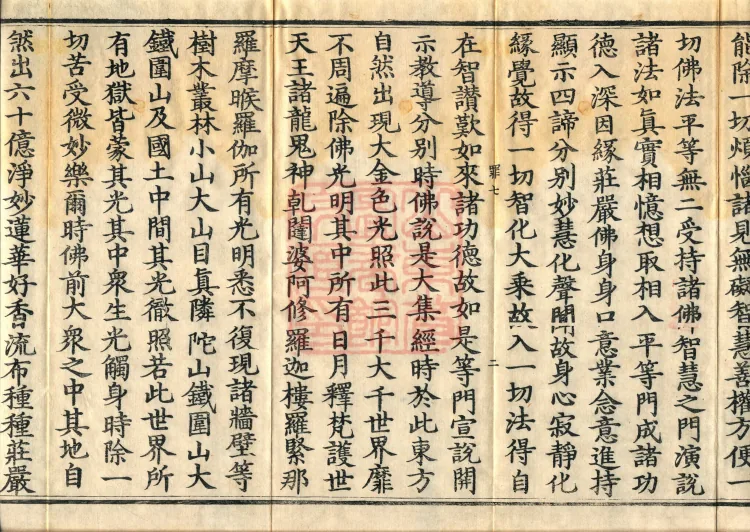 能除一切煩惱諸見無礙智慧善權方便一
切佛法平等無二受持諸佛智慧之門演說
諸法如真實相憶想取相入平等門成諸功
德入深因緣莊嚴佛身身口意業念意進持
顯示四諦分別妙慧化聲聞故身心寂靜化
緣覺故得一切智化大乘故入一切法得自
罪七
二
在智讚歎如來諸功德故如是等門宣說開
示教導分別時佛說是大集經時於此東方
自然出現大金色光照此三千大千世界靡
不周遍除佛光明其中所有日月釋梵護世
天王諸龍鬼神乹闥婆阿修羅迦樓羅緊那
羅摩睺羅伽所有光明悉不復現諸牆壁等
樹木叢林小山大山目真隣陀山鐵圍山大
鐵圍山及國土中間其光徹照若此世界所
有地獄皆蒙其光其中衆生光觸身時除一
切苦受微妙樂爾時佛前大衆之中其地自
然出六十億淨妙蓮華好香流布種種莊嚴